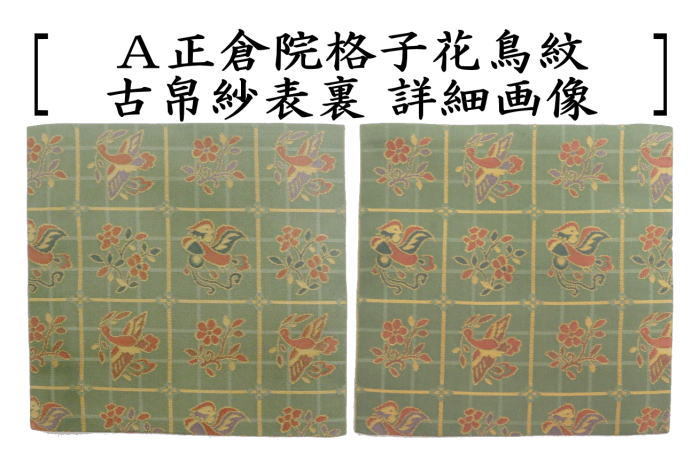 A正倉院格子花鳥紋
古帛紗表裏 詳細画像